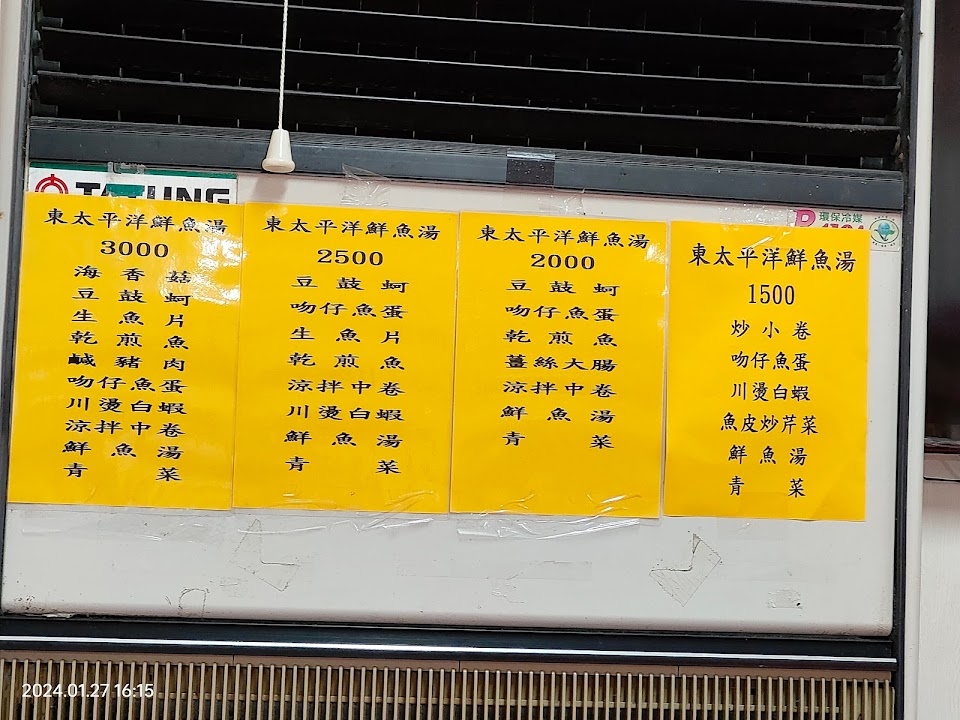 TATUNG
環保冷媒
東太平洋鮮魚湯
3000
海香菇
豆鼓蚵
生魚片
乾煎魚
鹹豬肉
吻仔魚蛋
川燙白蝦
涼拌中卷
鮮魚湯
青菜
東太平洋鮮魚湯
2500
豆鼓蚵
吻仔魚蛋
生魚片
乾煎魚
涼拌中卷
川燙白蝦
鮮魚湯
青菜
東太平洋鮮魚湯
2000
豆鼓蚵
吻仔魚蛋
乾煎魚
薑絲大腸
涼拌中卷
鮮魚湯
青菜
東太平洋鮮魚湯
1500
炒小卷
吻仔魚蛋
川燙白蝦
魚皮炒芹菜
鮮魚湯
青菜
2024.01.27 16:15